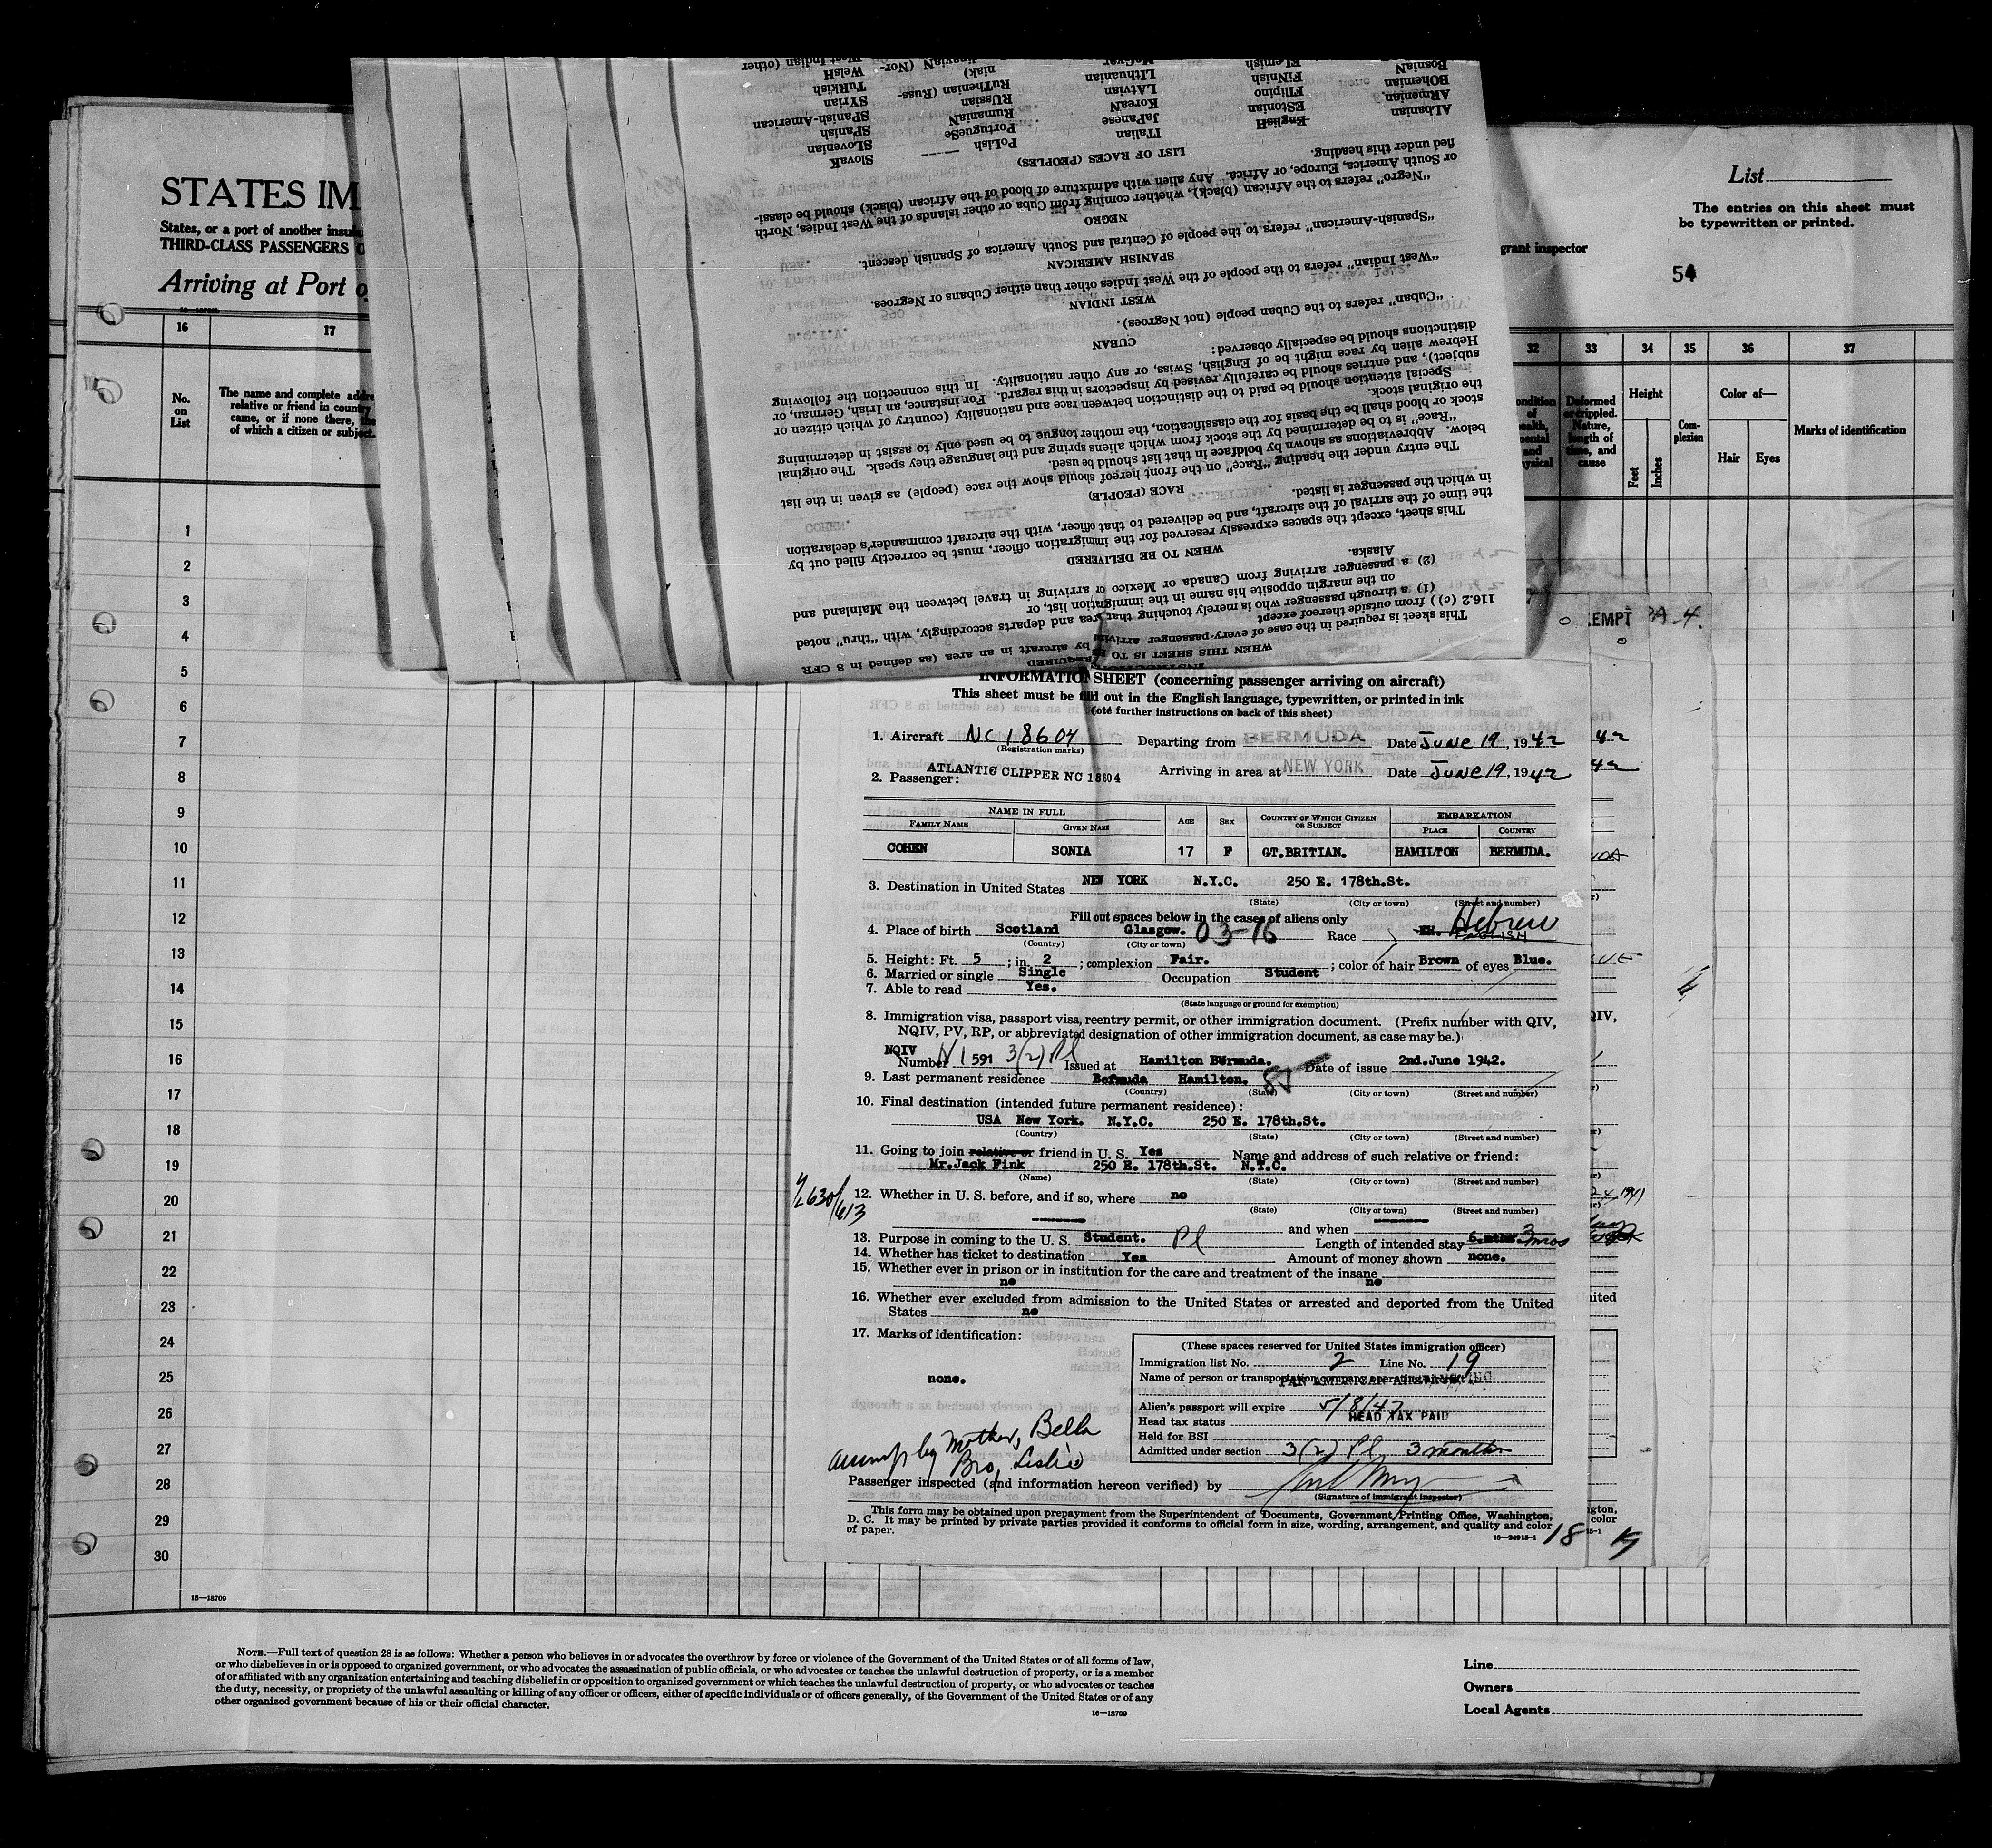 STATES IM
States, or a port of another insul
THIRD-CLASS PASSENGERS
Arriving at Port
List
The entries on this sheet must
be typewritten or printed.
grant inspector
54
16 17
No.
on
List
The name and complete addre
relative or friend in country
came, or if none there, the
of which a citizen or subject.
32 33 34 35 36 37
ondition
of
ealth,
mental
and
ysical
Deformed
or crippled.
Nature,
length of
time, and
cause
Height
Feet Inches
Com-
plexion
Color of—
Hair Eyes
Marks of identification
1
2
3
4
5
6
7
8
9
10
11
12
13
14
15
16
17
18
19
20
21
22
23
24
25
26
27
28
29
30
16—18709
WHEN THIS SHEET IS TO BE REQUIRED
This sheet is required in the case of every passenger arriving by aircraft in an area (as defined in 8 CFR
116.2 (c)) from outside thereof except
(1) a through passenger who is merely touching that area and departs accordingly, with "thru" noted
on the margin opposite his name in the immigration list, or
(2) a passenger arriving from Canada or Mexico or arriving in travel between the Mainland and
Alaska.
WHEN TO BE DELIVERED
This sheet, except the spaces expressly reserved for the immigration officer, must be correctly filled out by
the time of the arrival of the aircraft, and be delivered to that officer, with the aircraft commander's declaration
in which the passenger is listed.
RACE (PEOPLE)
The entry under the heading "Race" on the front hereof should show the race (people) as given in the list
below. Abbreviations as shown by boldface in that list should be used.
"Race" is to be determined by the stock from which aliens spring and the language they speak. The original
stock or blood shall be the basis for the classification, the mother tongue to be used only to assist in determining
the original stock.
Special attention should be paid to the distinction between race and nationality (country of which citizen or
subject), and entries should be carefully revised by inspectors in this regard. For instance, an Irish, German, or
Hebrew alien by race might be of English, Swiss, or any other nationality. In this connection the following
distinctions should be especially observed:
CUBAN
"Cuban" refers to the Cuban people (not Negroes).
WEST INDIAN
"West Indian" refers to the people of the West Indies other than either Cubans or Negroes.
SPANISH AMERICAN
"Spanish-American" refers to the people of Central and South America of Spanish descent.
NEGRO
"Negro" refers to the African (black), whether coming from Cuba or other islands of the West Indies, North
or South America, Europe, or Africa. Any alien with admixture of blood of the African (black) should be classi-
fied under this heading.
LIST OF RACES (PEOPLES)
ALbanian EnglisH ITalian PoLish SlovaK
ARmenian EStonian JaPanese PortugueSe SLovenian
BOhemian FIlipino KoreaN RumaniaN SPanish
BosniaN FiNnish LAtvian RUssian SPanish-American
FLemish LIthuanian RuThenian (Russ- SYrian
MaGyar niak) TuRkish
WelsH
West Indian (other
INFORMATION SHEET (concerning passenger arriving on aircraft)
This sheet must be fill out in the English language, typewritten, or printed in ink
(ote further instructions on back of this sheet)
1. Aircraft NC 18604 Departing from BERMUDA Date JUNE 19, 1942
(Registration marks)
ATLANTIC CLIPPER NC 18604
2. Passenger: Arriving in area at NEW YORK Date JUNE 19, 1942
NAME IN FULL AGE SEX COUNTRY OF WHICH CITIZEN OR SUBJECT EMBARKATION
FAMILY NAME GIVEN NAME PLACE COUNTRY
COHEN SONIA 17 F GT.BRITIAN. HAMILTON BERMUDA.
3. Destination in United States NEW YORK N.Y.C. 250 E. 178th.St.
(State) (City or town) (Street and number)
Fill out spaces below in the cases of aliens only
4. Place of birth Scotland Glasgow. 03-16 Race Hebrew ENGLISH
(Country) (City or town)
5. Height: Ft. 5; in. 2; complexion Fair.; color of hair Brown of eyes Blue.
6. Married or single Single Occupation Student
7. Able to read Yes.
(State language or ground for exemption)
8. Immigration visa, passport visa, reentry permit, or other immigration document. (Prefix number with QIV,
NQIV, PV, RP, or abbreviated designation of other immigration document, as case may be.)
NQIV
Number 591 3(2) Pl Issued at Hamilton Bermuda. Date of issue 2nd.June 1942.
9. Last permanent residence Bermuda Hamilton.
(Country) (State) (City or town) (Street and number)
10. Final destination (intended future permanent residence):
USA New York. N.Y.C. 250 E. 178th.St.
(Country) (State) (City or town) (Street and number)
11. Going to join relative or friend in U. S. Yes Name and address of such relative or friend:
Mr.Jack Fink 250 E. 178th.St. N.Y.C.
(Name) (State) (City or town) (Street and number)
12. Whether in U. S. before, and if so, where no
(State) (City or town) (Street and number)
and when
13. Purpose in coming to the U. S. Student. Pl Length of intended stay 6.mths. 3 mos
14. Whether has ticket to destination Yes Amount of money shown none.
15. Whether ever in prison or in institution for the care and treatment of the insane
no no
16. Whether ever excluded from admission to the United States or arrested and deported from the United
States no
17. Marks of identification:
none.
(These spaces reserved for United States immigration officer)
Immigration list No. 2 Line No. 19
Name of person or transportation company operating aircraft
PAN AMERICAN AIRWAYS INC
Alien's passport will expire 5/8/47
Head tax status HEAD TAX PAID
Held for BSI
Admitted under section 3(2) Pl 3 months
accomp by Mother, Bella
Bro, Leslie
Passenger inspected (and information hereon verified) by
(Signature of immigrant inspector)
This form may be obtained upon prepayment from the Superintendent of Documents, Government Printing Office, Washington,
D. C. It may be printed by private parties provided it conforms to official form in size, wording, arrangement, and quality and color
of paper.
16—24915-1
18
NOTE.—Full text of question 28 is as follows: Whether a person who believes in or advocates the overthrow by force or violence of the Government of the United States or of all forms of law,
or who disbelieves in or is opposed to organized government, or who advocates the assassination of public officials, or who advocates or teaches the unlawful destruction of property, or is a member
of or affiliated with any organization entertaining and teaching disbelief in or opposition to organized government or which teaches the unlawful destruction of property, or who advocates or teaches
the duty, necessity, or propriety of the unlawful assaulting or killing of any officer or officers, either of specific individuals or of officers generally, of the Government of the United States or of any
other organized government because of his or their official character.
16—18709
Line
Owners
Local Agents